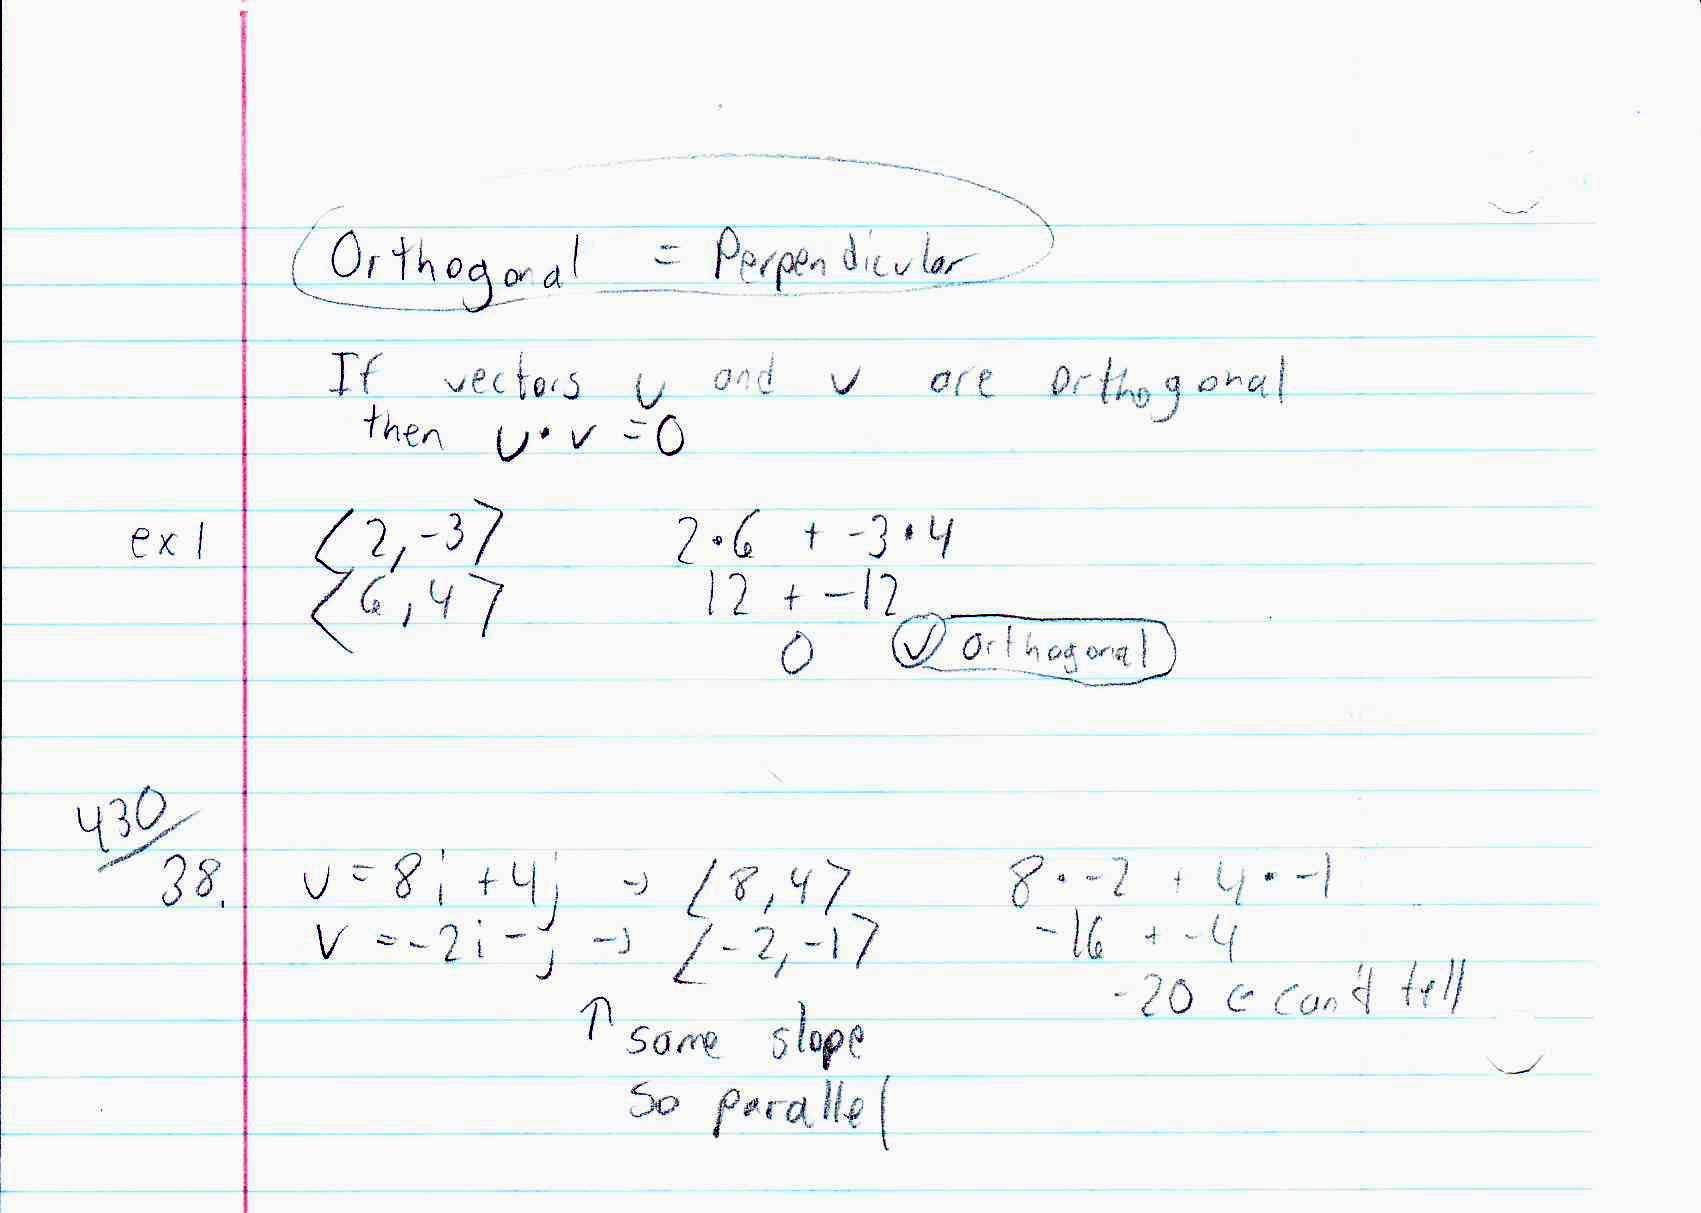 Orthogonal = Perpendicular
If vectors u and v are orthogonal
then u • v = 0
ex 1 <2, -3> 2•6 + -3•4
<6, 4> 12 + -12
0 ✓ orthogonal
430
38. u = 8i + 4j → <8, 4> 8 • -2 + 4 • -1
v = -2i - j → <-2, -1> -16 + -4
-20 ← can't tell
↑ same slope
so parallel